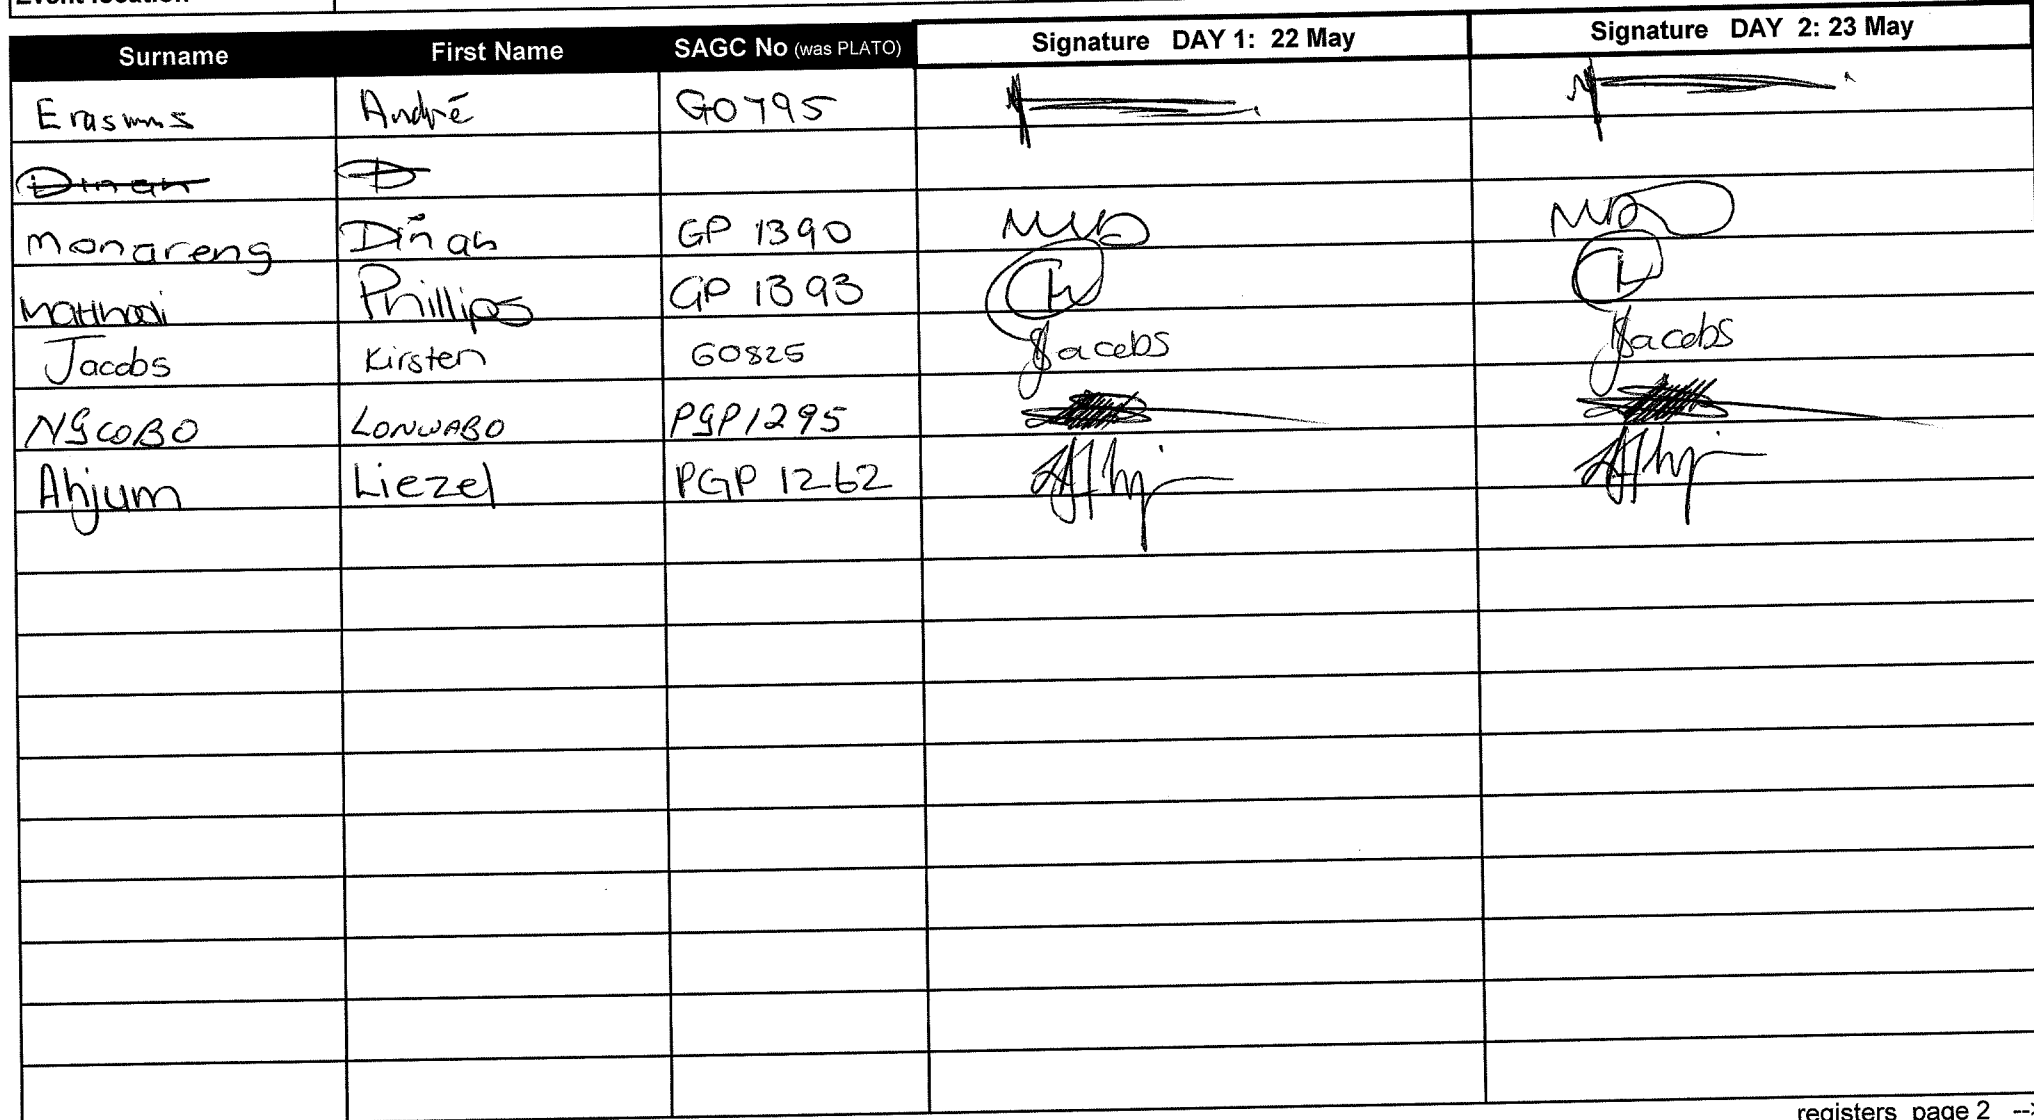 Event location
Surname First Name SAGC No (was PLATO) Signature DAY 1: 22 May Signature DAY 2: 23 May
Erasmus André G0795
Dinah D
Monareng Dinah GP 1390
Phillips GP 1393
Jacobs Kirsten G0825 Jacobs Jacobs
NGCOBO LONWABO PGP1295
Ahjum Liezel PGP 1262
registers page 2 -->